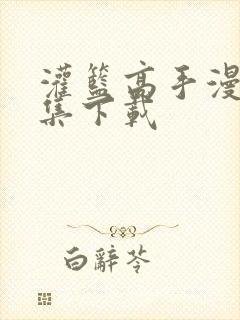 灌籃高手漫
集下載
白辭苓